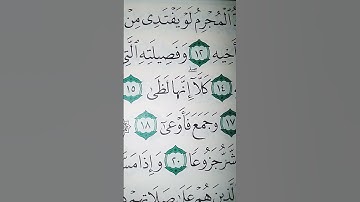 ٱلْمُجْرِمُ لَوْ يَفْتَدِى مِنْ
أَخِيهِ ١٢ وَفَصِيلَتِهِ ٱلَّتِى
١٤ كَلَّآ إِنَّهَا لَظَىٰ ١٥
١٧ وَجَمَعَ فَأَوْعَىٰ ١٨
ٱلشَّرُّ جَزُوعًا ٢٠ وَإِذَا
ٱلَّذِينَ هُمْ عَلَىٰ صَلَاتِهِمْ